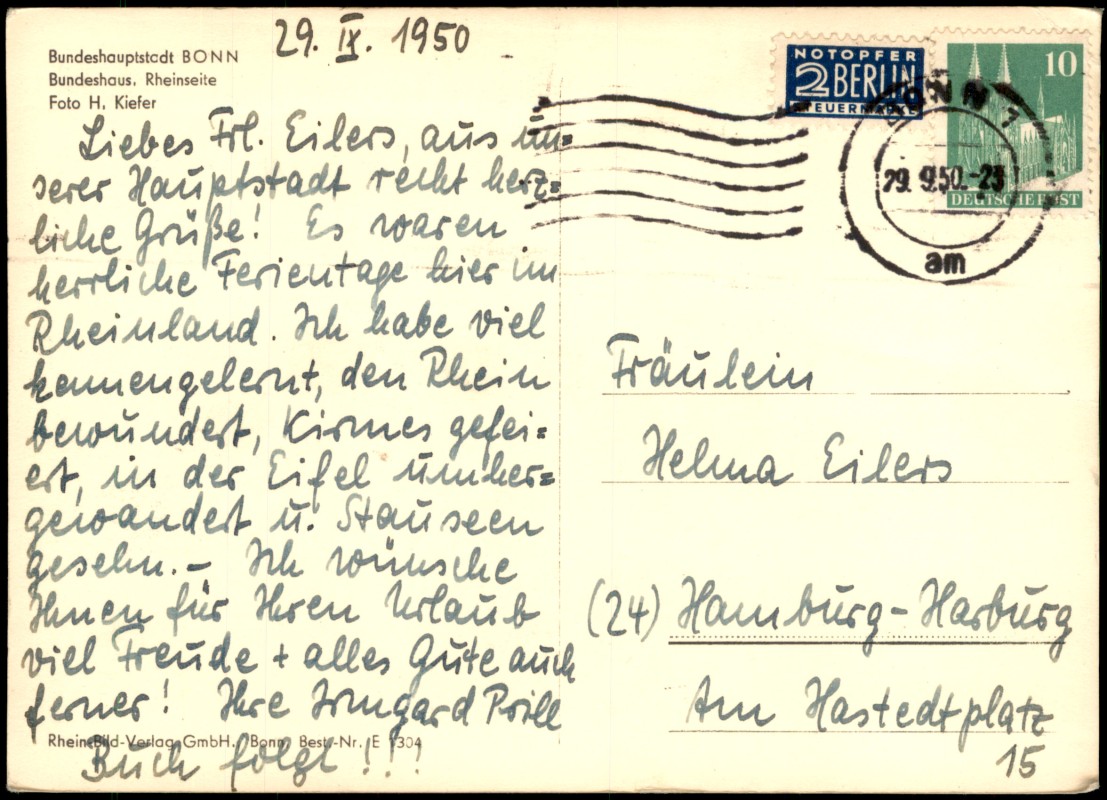 29. IX. 1950
Bundeshauptstadt BONN
Bundeshaus, Rheinseite
Foto H. Kiefer
Liebes Frl. Eilers, aus un=
serer Hauptstadt recht herz=
liche Grüße! Es waren
herrliche Ferientage hier im
Rheinland. Ich habe viel
kennengelernt, den Rhein
bewundert, Kirmes gefei=
ert, in der Eifel umher=
gewandert u. Stauseen
gesehn. – Ich wünsche
Ihnen für Ihren Urlaub
viel Freude + alles Gute auch
ferner! Ihre Irmgard Prill
Rhein-Bild-Verlag GmbH., Bonn, Best.-Nr. E 1304
Buch folgt!!!
NOTOPFER
2 BERLIN
STEUERMARKE
10
DEUTSCHE POST
BONN 1
29. 9.50.-23
am
Fräulein
Helma Eilers
(24) Hamburg-Harburg
Am Hastedtplatz
15